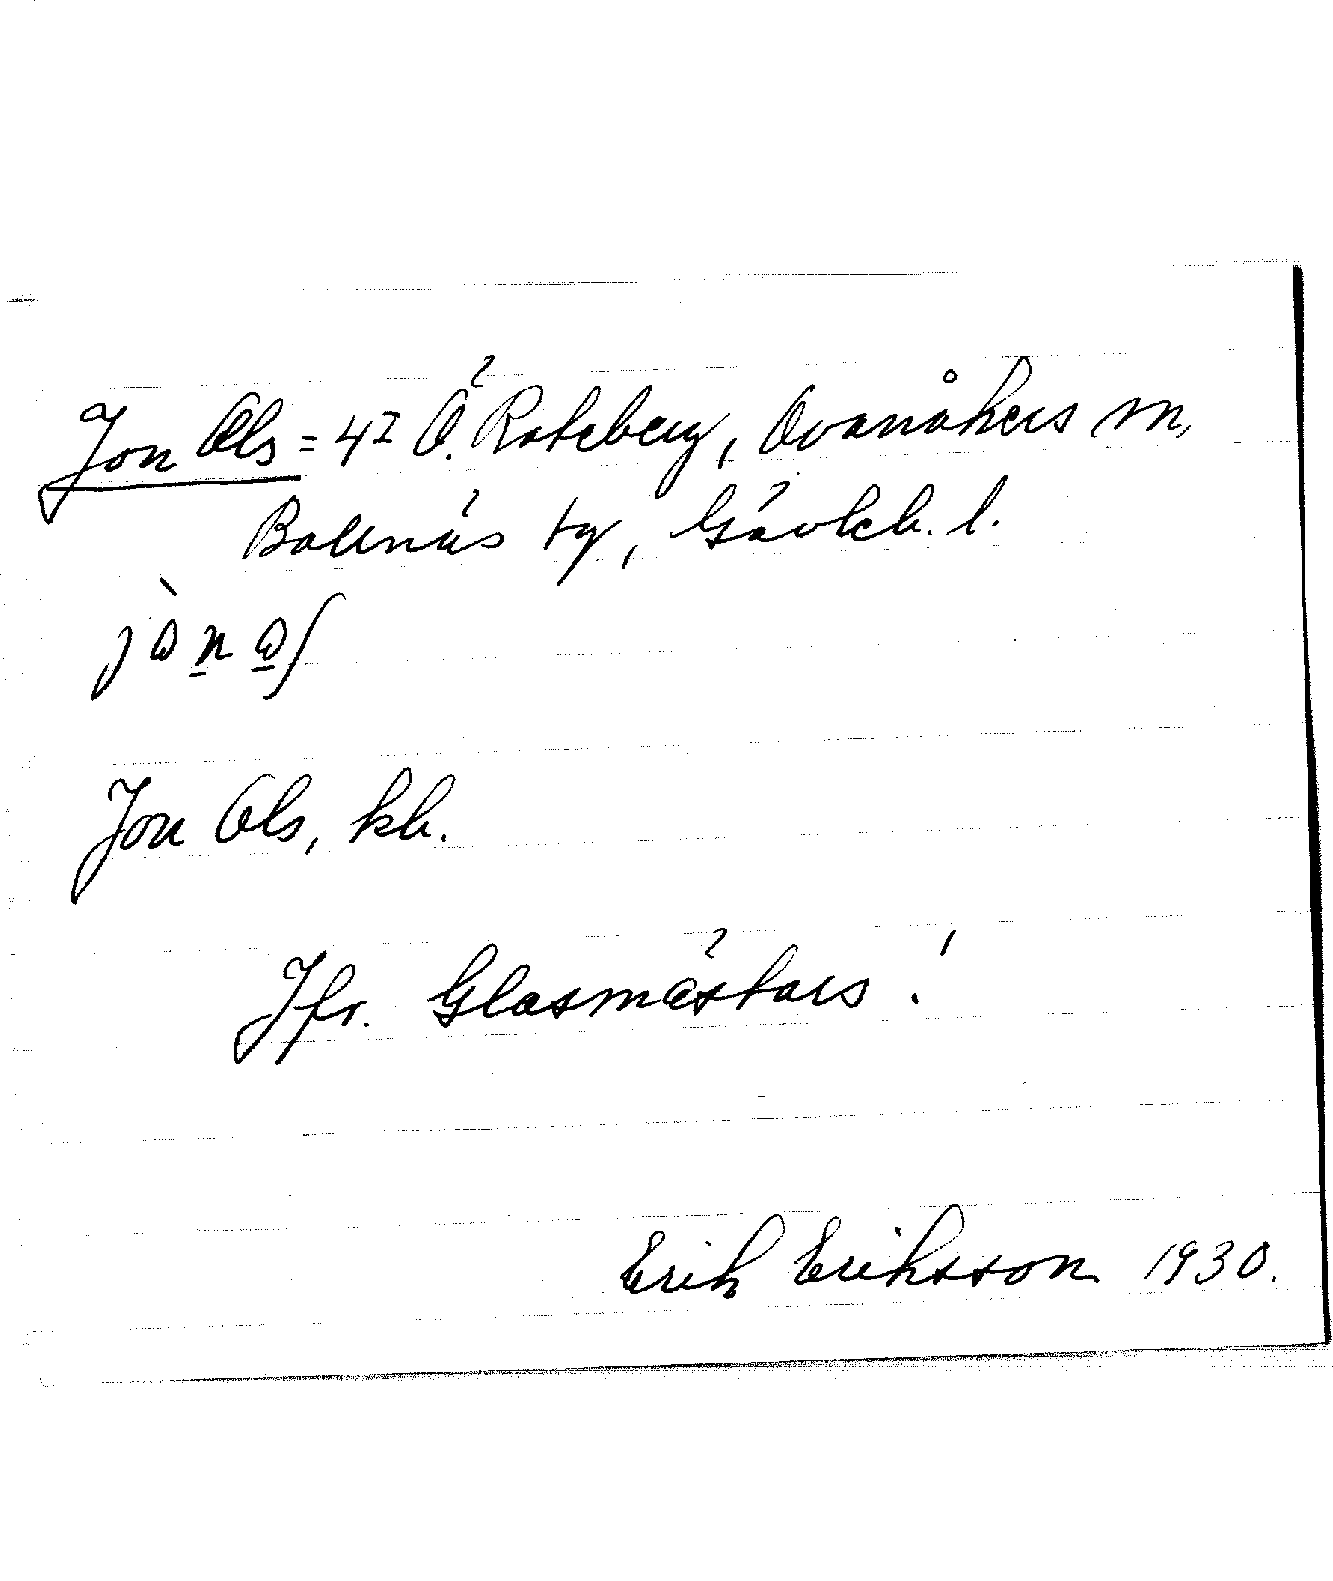 Jon Ols = 4I Ö. Roteberg, Ovanåkers sn,
Bollnäs tg, Gävleb. l.
Jon Ols, kb.
Jfr. Glasmästars!
Erik Eriksson 1930.